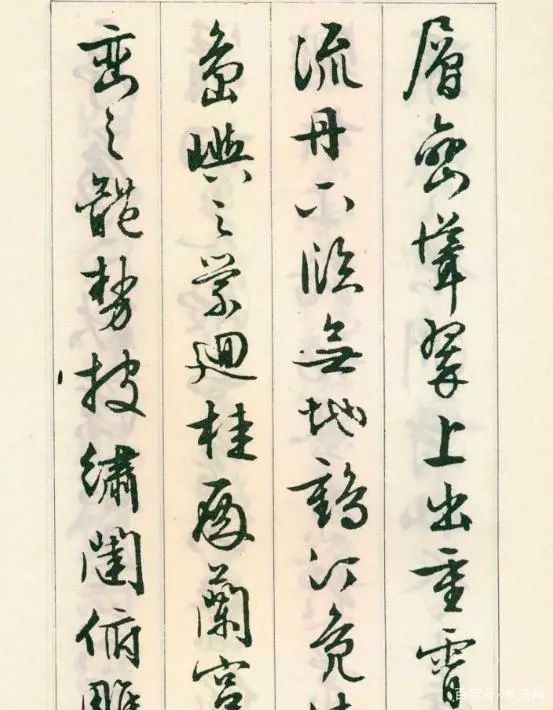 層巒聳翠上出重霄
流丹下臨無地鶴汀凫
島嶼之縈廻桂殿蘭宮
巒之體勢披繡闥俯雕
百家号